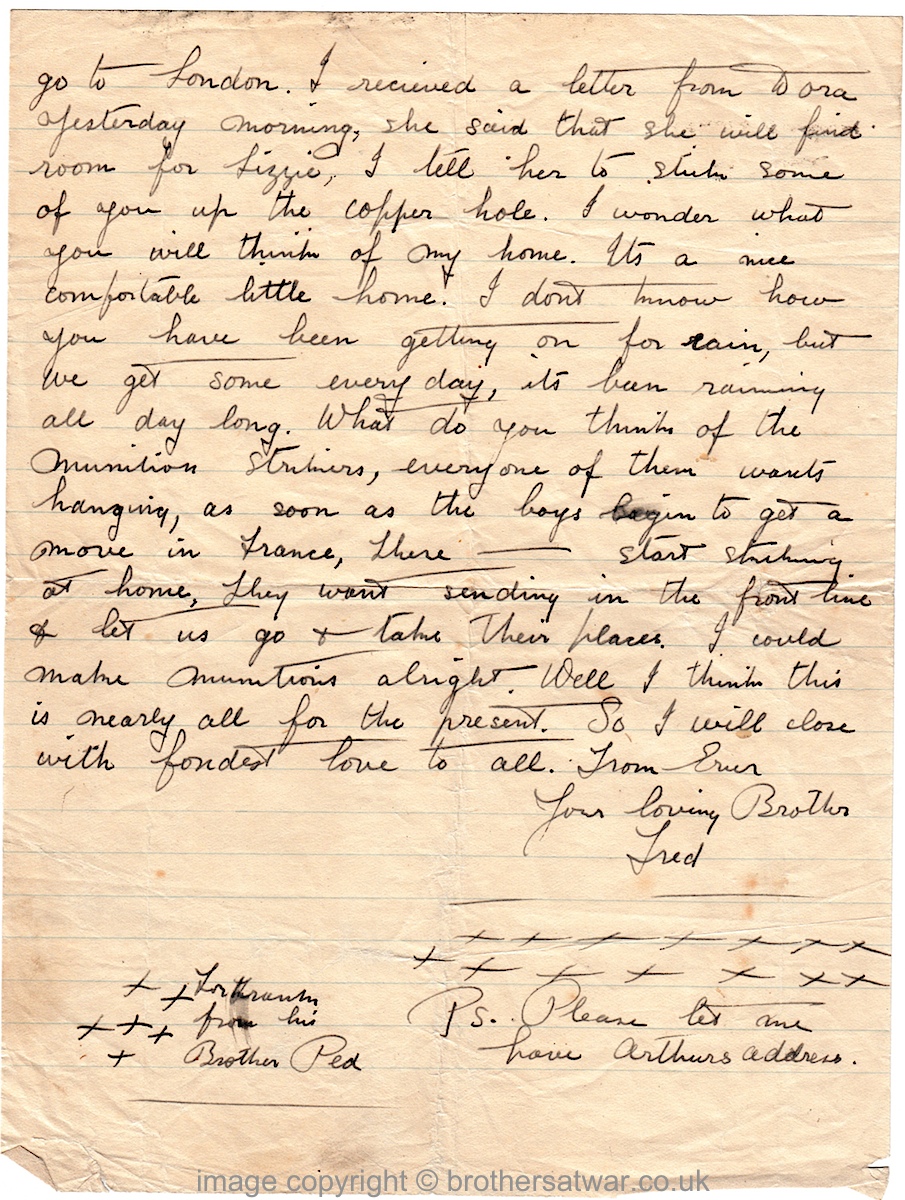 go to London. I recieved a letter from Dora
Yesterday morning, she said that she will find
room for Lizzie, I tell her to stick some
of you up the copper hole. I wonder what
you will think of my home. Its a nice
comfortable little home. I dont know how
you have been getting on for rain, but
we get some every day, its been raining
all day long. What do you think of the
munition strikers, everyone of them wants
hanging, as soon as the boys begin to get a
move in France, there —— start striking
at home, they want sending in the front line
& let us go & take their places. I could
make munitions alright. Well I think this
is nearly all for the present. So I will close
with fondest love to all. From Ever
Your loving Brother
Fred
x x x x x x x
x x x x x x x
x x For Frank
x x x from his
x Brother Ped
Ps.. Please let me
have Arthurs address.
image copyright © brothersatwar.co.uk